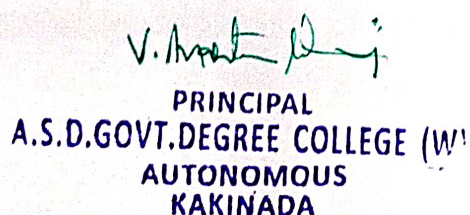 V.
PRINCIPAL
A.S.D.GOVT.DEGREE COLLEGE (W)
AUTONOMOUS
KAKINADA